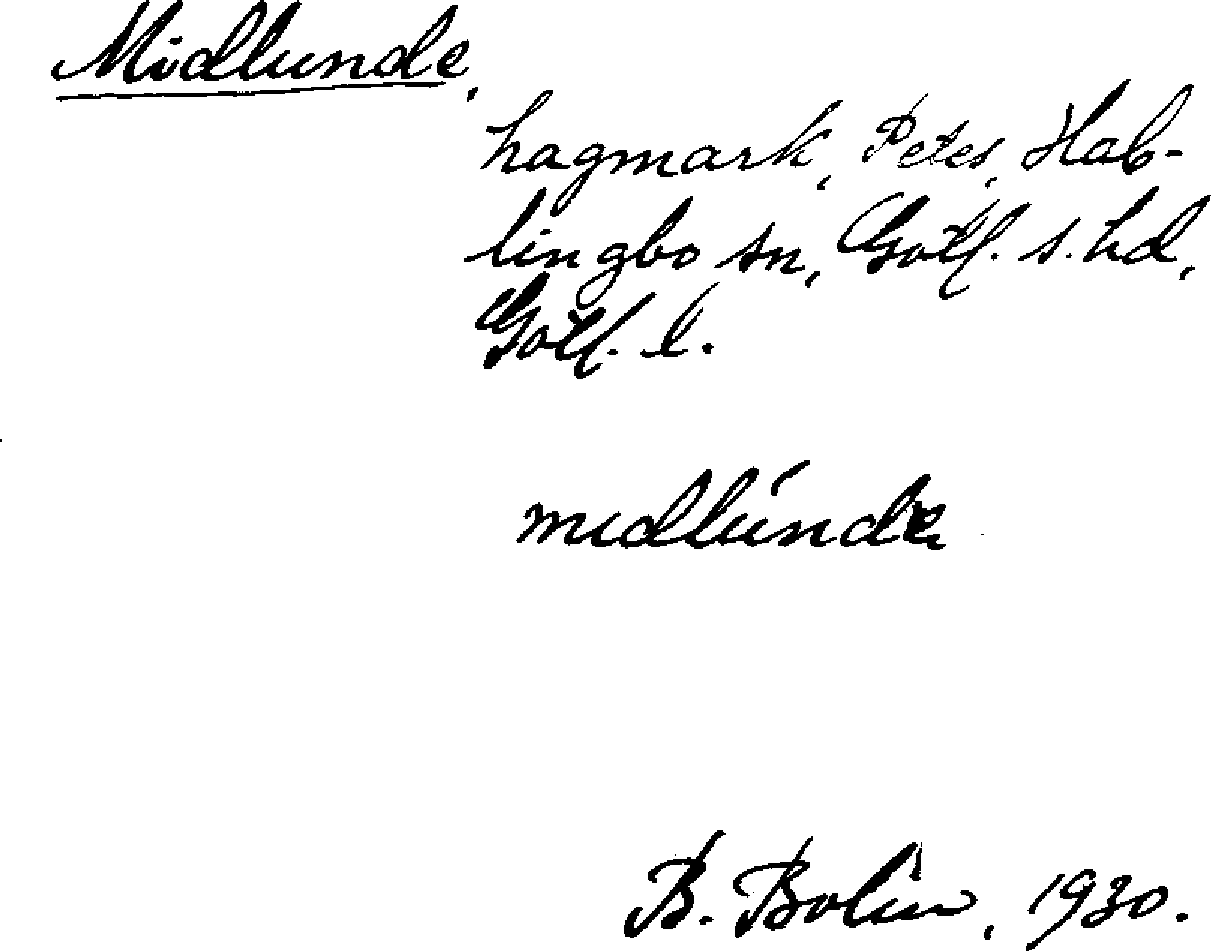 Midlunde,
hagmark, Petes, Hab-
lingbo sn, Gotl. s. hd,
Gotl. l.
mıdlúnde
B. Bolin, 1930.